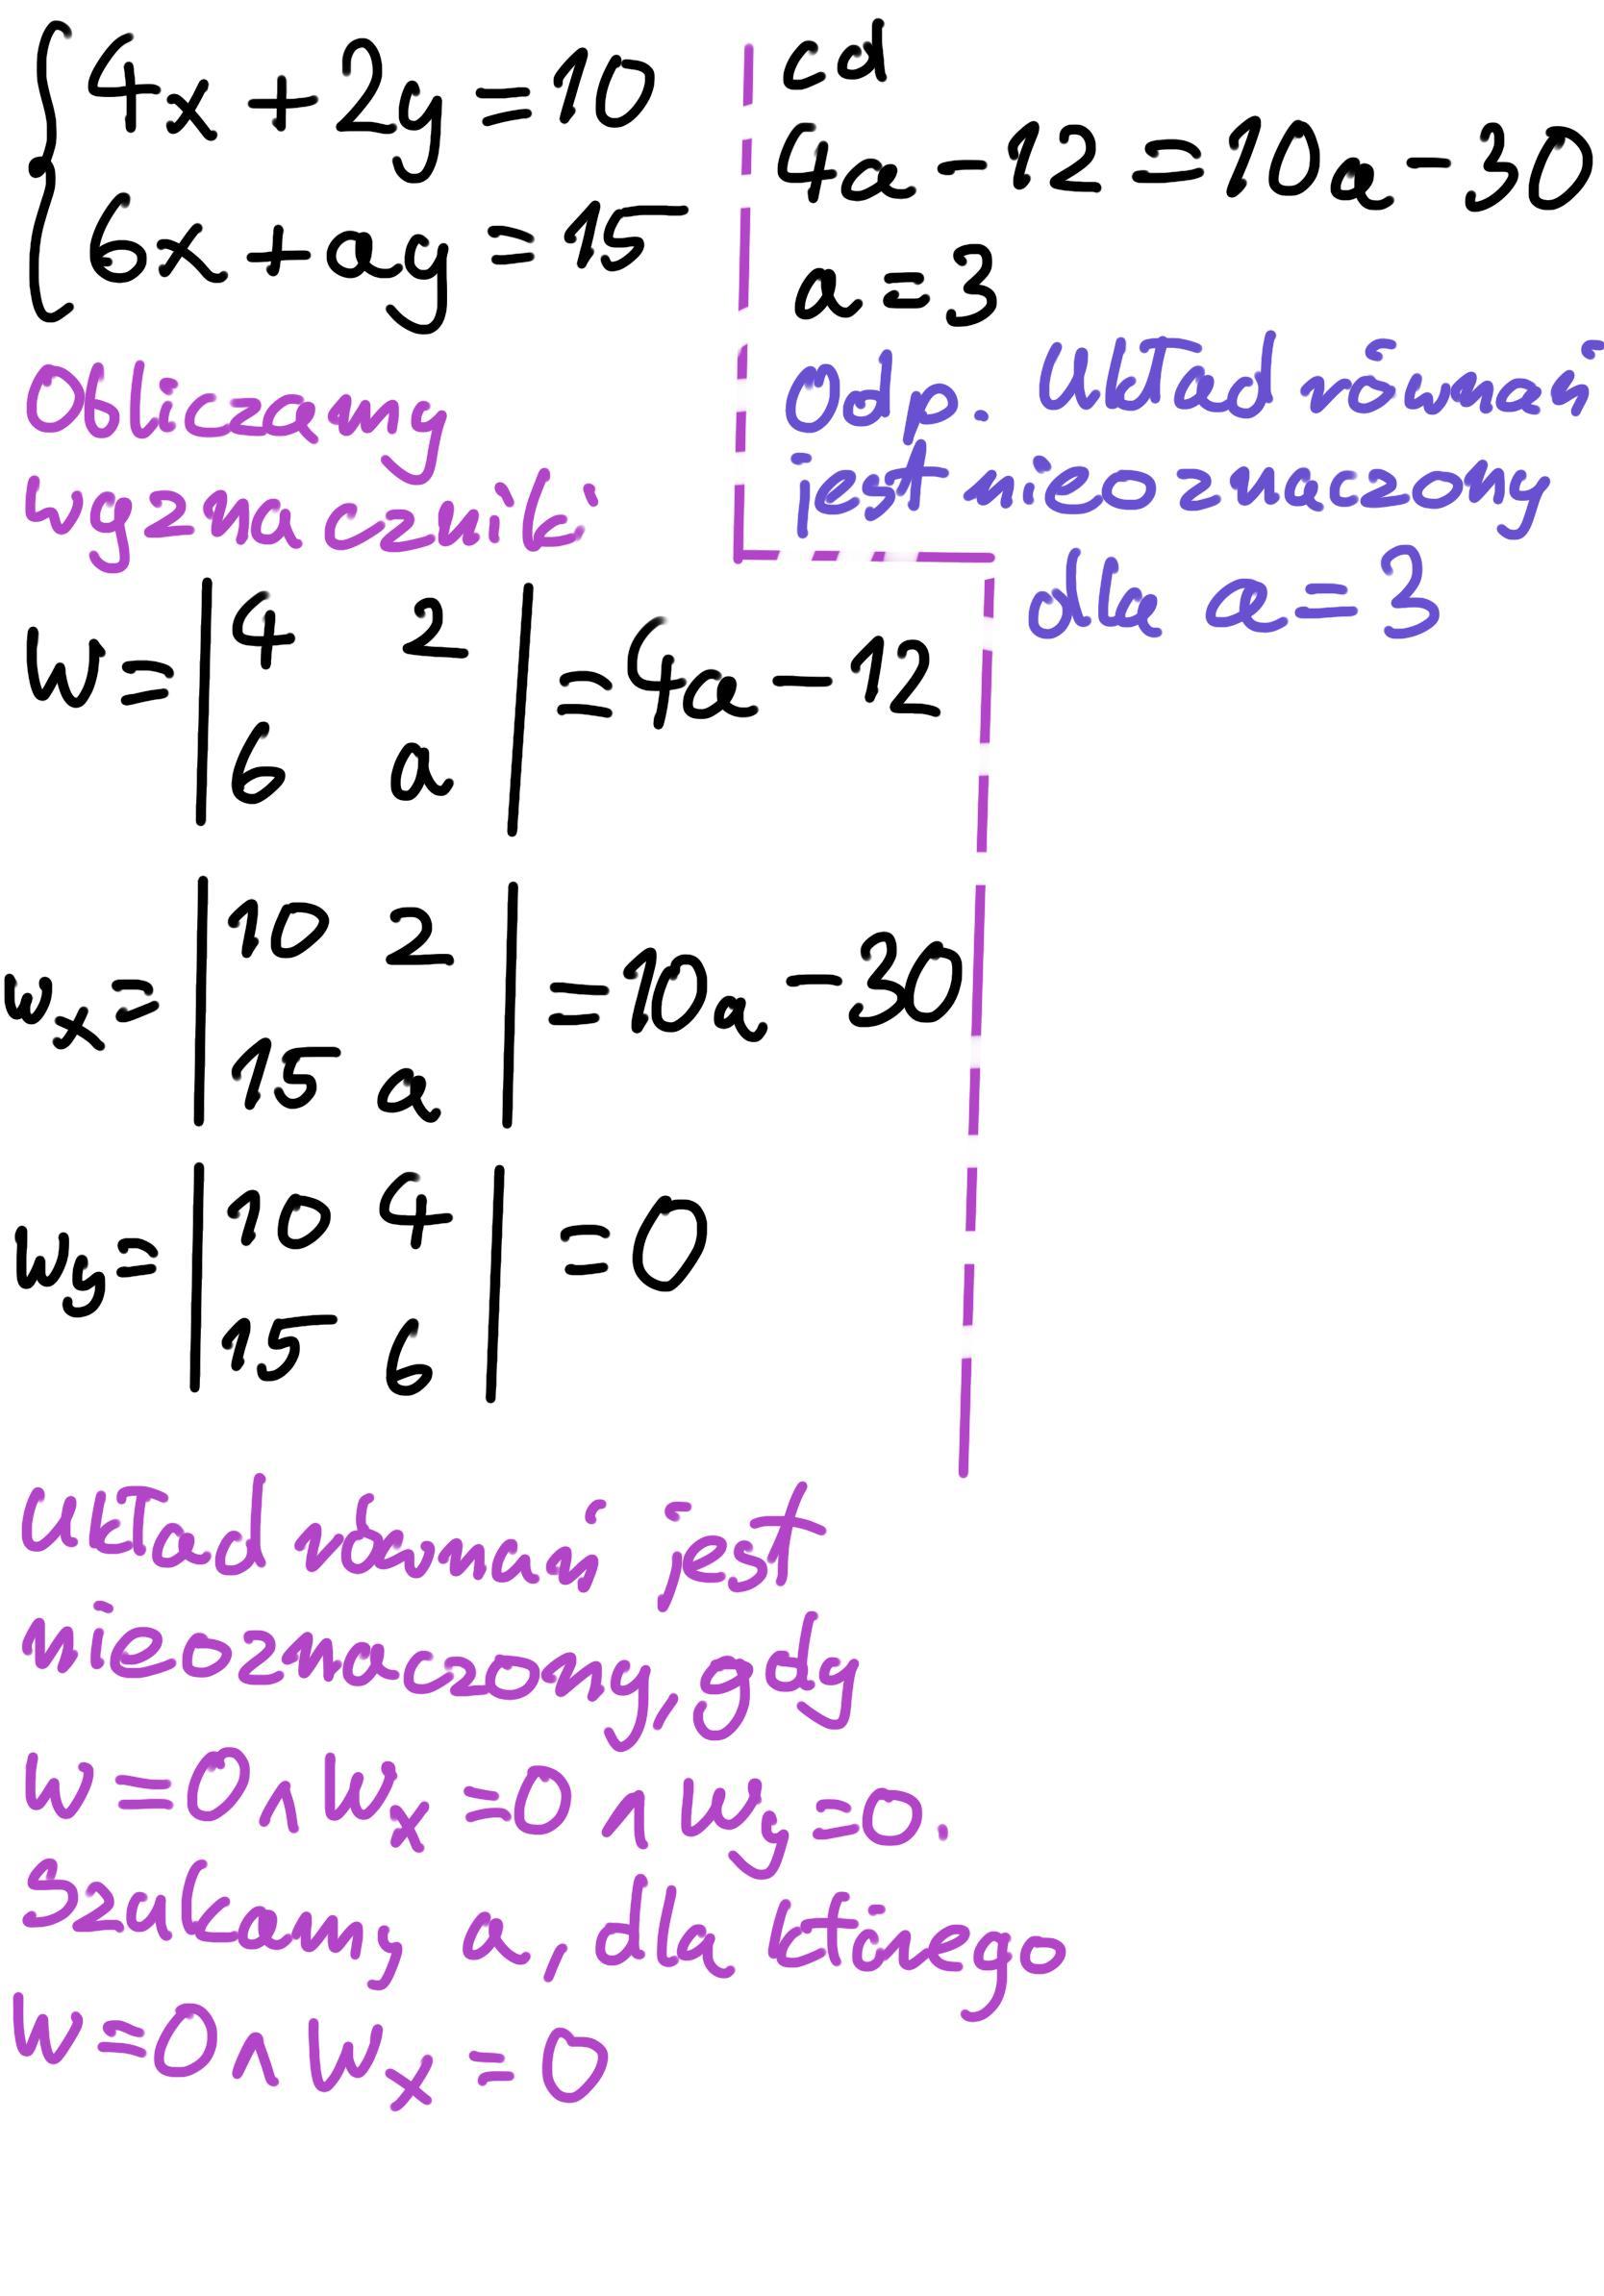 4x + 2y = 10
6x + ay = 15
Obliczamy
wyznaczniki
W = | 4 2 | = 4a - 12
6 a
Wx = | 10 2 | = 10a - 30
15 a
Wy = | 10 4 | = 0
15 6
Układ równań jest
nieoznaczony, gdy
W = 0 ∧ Wx = 0 ∧ Wy = 0.
Szukamy a, dla którego
W = 0 ∧ Wx = 0
cd
4a - 12 = 10a - 30
a = 3
Odp. Układ równań
jest nieoznaczony
dla a = 3